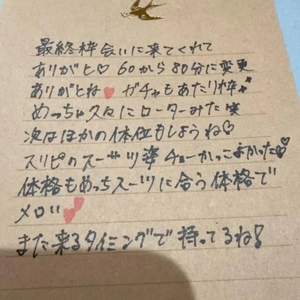 最終枠会いに来てくれて
ありがと♡ 60から80分に変更
ありがとね❤ ガチャもあたり枠※
めっちゃ久々にローターみた笑
次はほかの体位もしようね♡
スリピのスーツ姿チョーかっこよかった♡
体格もめっちスーツに合う体格で
メロい💕
また来るタイミングで待ってるね!